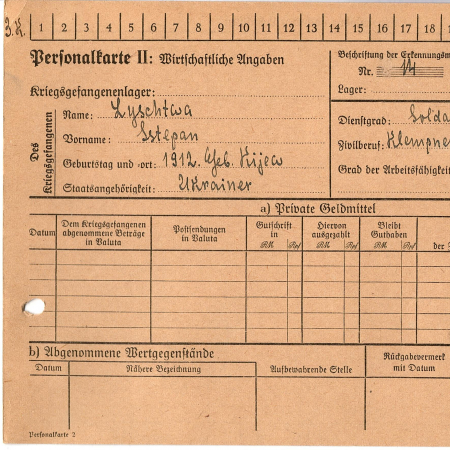 3.K. 1 2 3 4 5 6 7 8 9 10 11 12 13 14 15 16 17 18
Personalkarte II: Wirtschaftliche Angaben
Kriegsgefangenenlager:
Des Kriegsgefangenen
Name: Lyschtwa
Vorname: Sstepan
Geburtstag und -ort: 1912. Geb. Kijew
Staatsangehörigkeit: Ukrainer
Beschriftung der Erkennungsm
Nr. 14
Lager:
Dienstgrad: Solda
Zivilberuf: Klempner
Grad der Arbeitsfähigkeit
a) Private Geldmittel
Datum
Dem Kriegsgefangenen
abgenommene Beträge
in Valuta
Postsendungen
in Valuta
Gutschrift
in
RM Rpf
Hiervon
ausgezahlt
RM Rpf
Bleibt
Guthaben
RM Rpf
der
b) Abgenommene Wertgegenstände
Datum
Nähere Bezeichnung
Aufbewahrende Stelle
Rückgabevermerk
mit Datum
Personalkarte 2